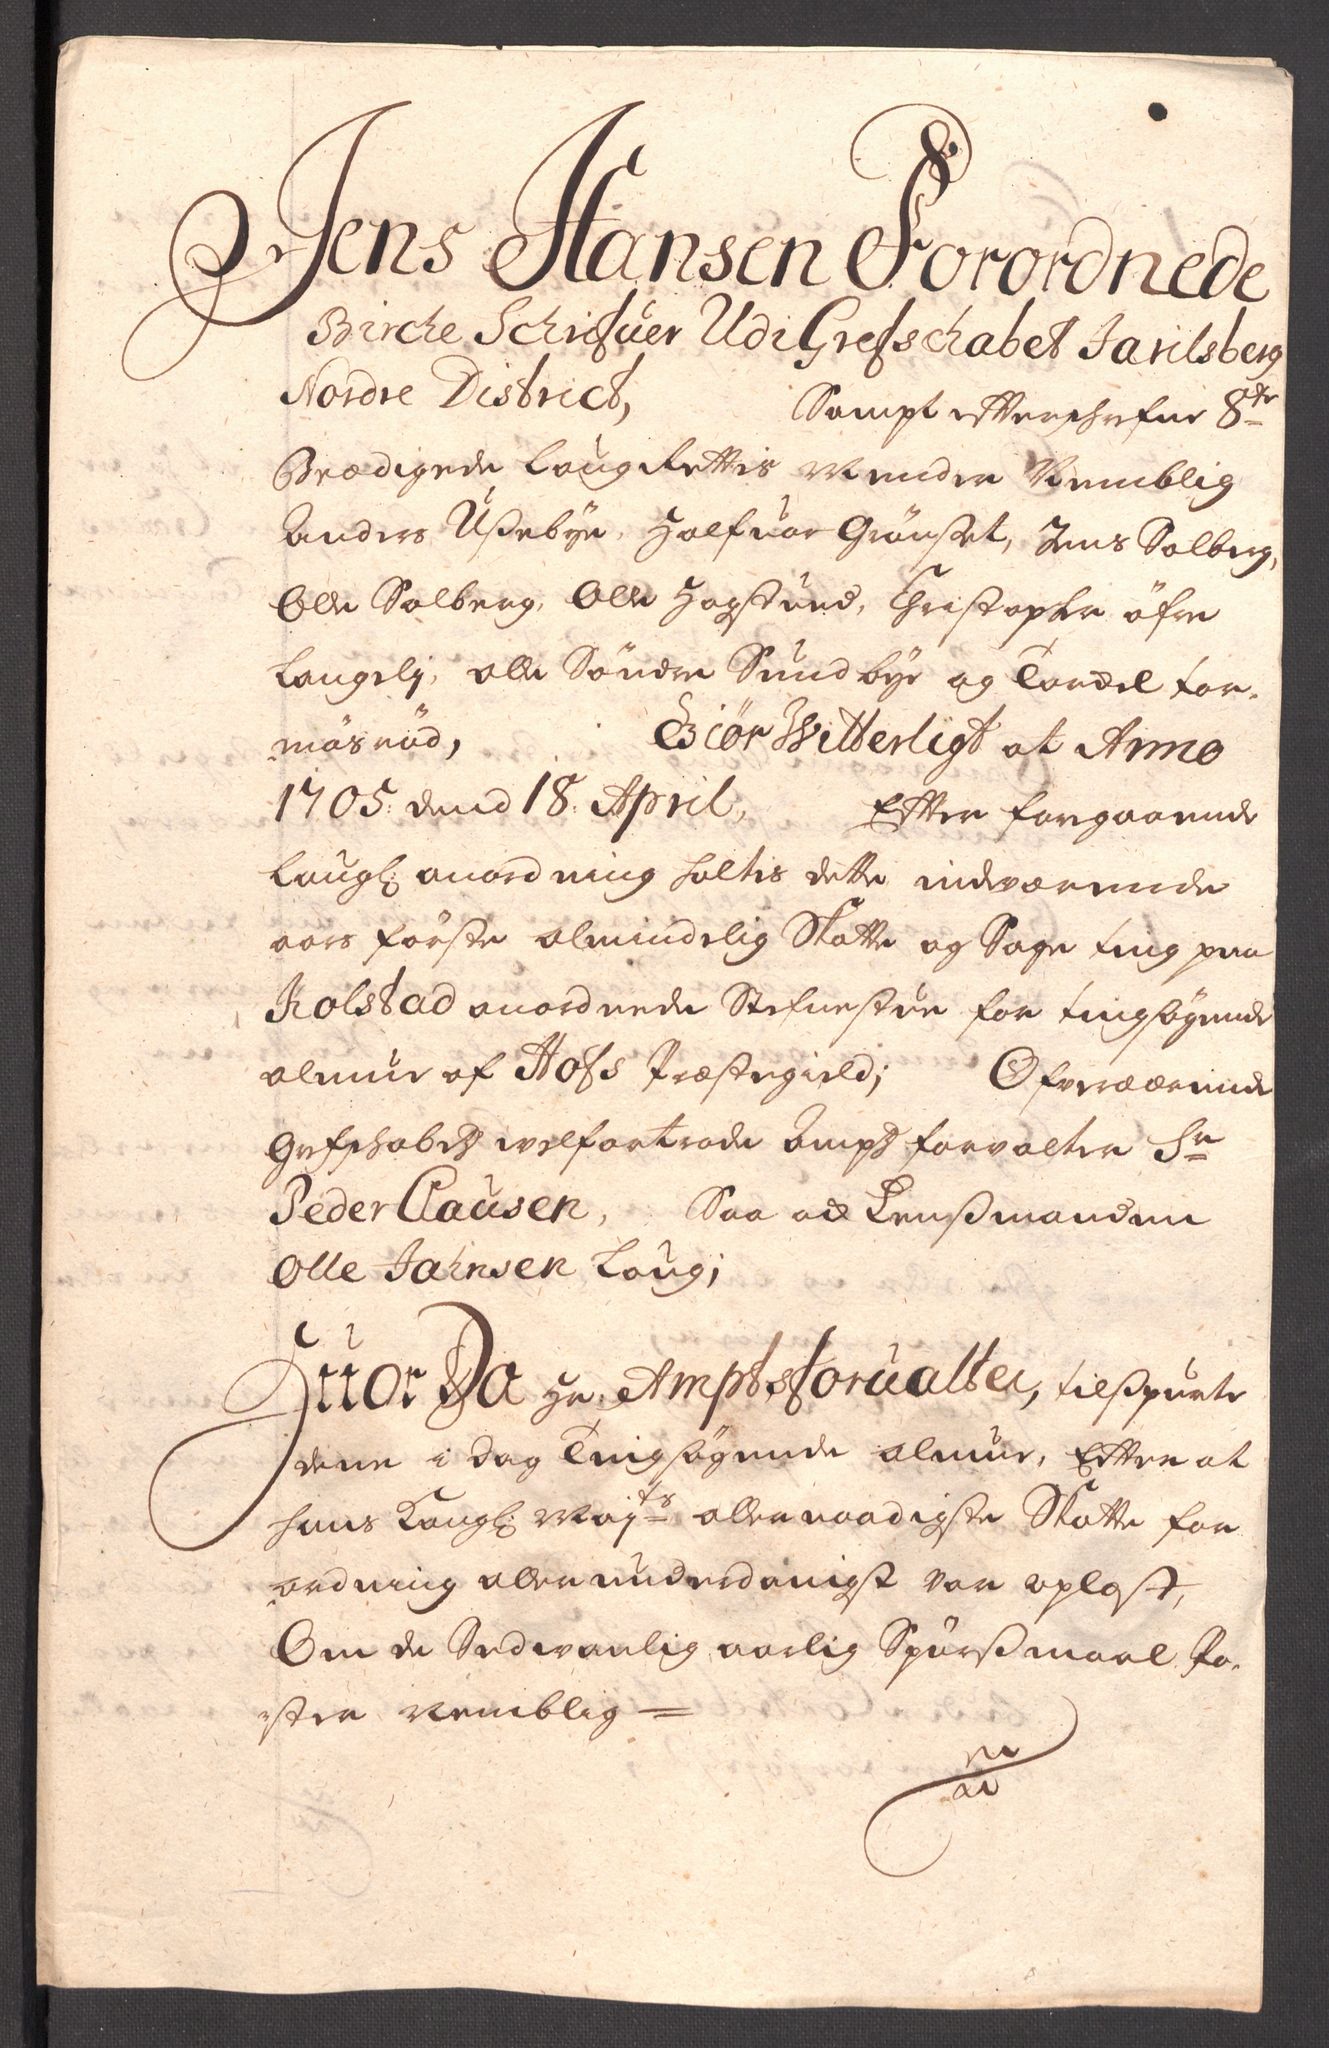 Jens Hansen Forordnede
Birche Schrifuer Udi Grefschabet Jarilsberg
Nordre District, Sampt efterschrefne 8te
Beædigede Laugrettis Mender Nemblig
Anders Ußebye, Halfuor Grönset, Jens Solberg,
Olle Solberg, Olle Hogstued, Christopher öfre
Langelj, olle Söndre Sundbye og Tordel tor-
mösröd, Giör Witterligt at Anno
1705 dend 18 April, Effter forgaaende
Laugl: anordning holtis dette indværende
aars förste almindelig Skatte og Sage ting paa
Kolstad anordnede Stefnestue for tingsögende
almue af Hofs Præstegield; Ofverværende
Grefschabets welfortrode Ampts forvalter Sr
Peder Clausen, Saa og Lensßmanden
Olle Jahnsen Laug;
Huor Da Hr. Amptsforualter, tilßpurte
denne i Dag Tingsögende almue, Effter at
hans Kongl: Mayts allernaadigste Skatte for
ordning allerunderdanigst var oplæst,
Om de Sedwanlig aarlig Spörßmaal Po-
ster Nemblig =